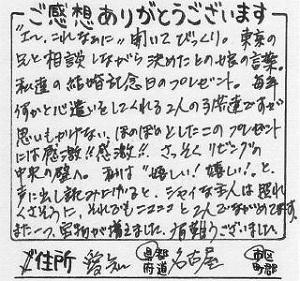 ご感想ありがとうございます
"エ〜、これなぁに" 開いてびっくり。東京の
兄と相談しながら決めたとの娘の言葉。
私達の結婚記念日のプレゼント。毎年
何かと心遣いをしてくれる2人の子供達ですが
思いもかけない、ほのぼのとしたこのプレゼント
には感激!!感激!!。さっそくリビングの
中央の壁へ。私は"嬉しい!嬉しい!"と
声に出し読み上げると、シャイな主人は照れ
くさそうに、それでもニコニコと2人でながめてます。
また一つ、宝物が増えました。有難うございました。
ご住所 愛知 都道府県 名古屋 市区町郡